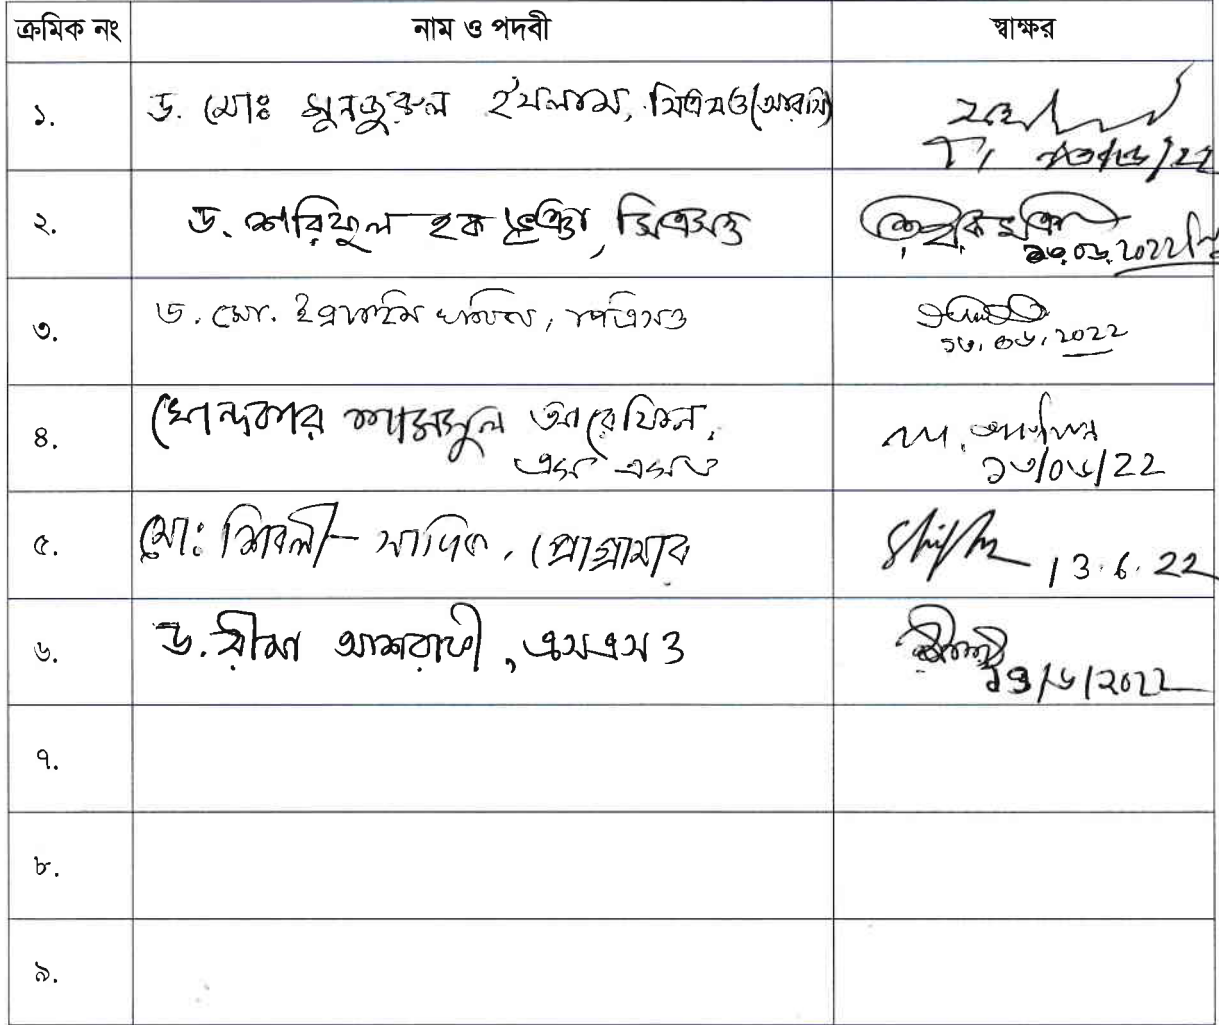 ক্রমিক নং নাম ও পদবী স্বাক্ষর
১. ড. মোঃ মুনজুরুল ইসলাম, সিএসও(আরসি)
২. ড. শরিফুল হক ভূঞা, সিএসও ১৩.০৬.2022
৩. ড. মো. ইব্রাহিম খলিল, পিএসও
১৩.০৬.2022
৪. খোন্দকার শামসুল আরেফিন,
এস এসও ১৩/০৬/22
৫. মোঃ শিবলী সাদিক, প্রোগ্রামার 13.6.22
৬. ড. রীমা আশরাফী, এসএসও
১৩/৬/2022
৭.
৮.
৯.